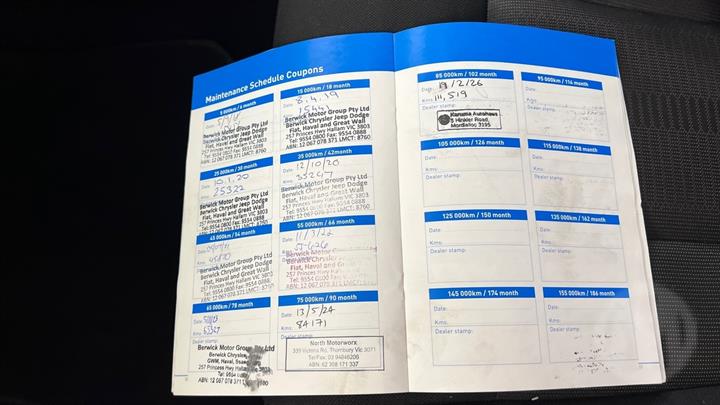 Maintenance Schedule Coupons
5 000km / 6 month
Date:
Berwick Motor Group Pty Ltd
Berwick Chrysler Jeep Dodge
Fiat, Haval and Great Wall
257 Princes Hwy Hallam VIC 3803
Tel: 9554 0800 Fax: 9551 0888
ABN: 12 067 078 371 LMCT: 8760
15 000km / 18 month
Date: 8.4.19
15441
Berwick Motor Group Pty Ltd
Berwick Chrysler Jeep Dodge
Fiat, Haval and Great Wall
257 Princes Hwy Hallam VIC 3803
Tel: 9554 0800 Fax: 9554 0888
ABN: 12 067 078 371 LMCT: 8760
25 000km / 30 month
Date: 10.1.20
Kms: 25322
Berwick Motor Group Pty Ltd
Berwick Chrysler Jeep Dodge
Fiat, Haval and Great Wall
257 Princes Hwy Hallam VIC 3803
Tel: 9554 0800 Fax: 9554 0888
ABN: 12 067 078 371 LMCT: 8760
35 000km / 42month
Date: 12/10/20
Kms: 35247
Berwick Motor Group Pty Ltd
Berwick Chrysler Jeep Dodge
Fiat, Haval and Great Wall
257 Princes Hwy Hallam VIC 3803
Tel: 9554 0800 Fax: 9554 0888
ABN: 12 067 078 371 LMCT: 8760
45 000km / 54 month
Date:
Kms:
Berwick Motor Group Pty Ltd
Berwick Chrysler Jeep Dodge
Fiat, Haval and Great Wall
257 Princes Hwy Hallam VIC 3803
Tel: 9554 0800 Fax: 9554 0888
ABN: 12 067 078 371 LMCT: 8760
55 000km / 66 month
Date: 11/3/22
Kms:
Dealer stamp:
Berwick Chrysler
Fiat, Haval and Great Wall
257 Princes Hwy
65 000km / 78 month
Date:
Kms: 65327
Dealer stamp:
Berwick Motor Group Pty Ltd
Berwick Chrysler
GWM, Haval,
257 Princes Hwy Hallam VIC 3803
Tel: 9554
ABN: 12 067 078 371
75 000km / 90 month
Date: 13/5/24
Kms: 84171
Dealer stamp:
North Motorworx
339 Victoria Rd, Thornbury Vic 3071
Tel/Fax: 03 94846206
ABN: 62 308 171 337
85 000km / 102 month
Date: 19/2/26
Kms: 111,519
Dealer stamp:
Kanama Autohaus
5 Hinkler Road,
Mordialloc 3195
95 000km / 114 month
Date:
Kms:
Dealer stamp:
105 000km / 126 month
Date:
Kms:
Dealer stamp:
115 000km / 138 month
Date:
Kms:
Dealer stamp:
125 000km / 150 month
Date:
Kms:
Dealer stamp:
135 000km / 162 month
Date:
Kms:
Dealer stamp:
145 000km / 174 month
Date:
Kms:
Dealer stamp:
155 000km / 186 month
Date:
Kms:
Dealer stamp: